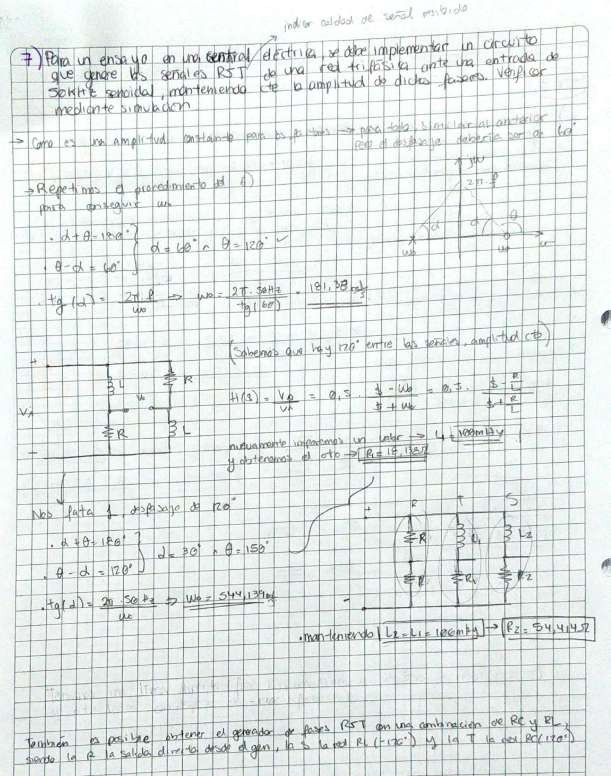 indicar calidad de señal recibida
7) Para un ensayo en una central eléctrica, se debe implementar un circuito
que genere las señales RST de una red trifásica ante una entrada de
50kHz senoidal, manteniendo cte la amplitud de dichos fasores. Verificar
mediante simulación
→ Como es una amplitud constante para los → pasa todo, similar al anterior
Pero el desfasaje debería ser de 60°
→ Repetimos el procedimiento
para conseguir wo
jw
2π.f
α α θ
wo wo σ
. α + θ = 180°
. θ - α = 60° } α = 60° ∧ θ = 120° ✓
. tg(α) = 2π.f / wo → wo = 2π.50Hz / tg(60) = 181,38 rad/s
(Sabemos que hay 120° entre las señales, amplitud cte)
+
L R
VA Vo
R L
-
H(s) = Vo/VA = 0,5 . $ - wo / $ + wo = 0,5 . $ - R/L / $ + R/L
nuevamente imponemos un valor → L = 100mHy
y obtenemos el otro → R1 = 18,138Ω
Nos falta 1, desfasaje de 120°
. α + θ = 180°
. θ - α = 120° } α = 30° ∧ θ = 150°
. tg(α) = 2π.50Hz / wo ⇒ wo = 544,139 rad/s
R T S
+
R L1 L2
R R1 R2
-
. manteniendo L2 = L1 = 100mHy → R2 = 54,414Ω
También es posible obtener el generador de fases RST con una combinación de RC y RL,
siendo la R la salida directa desde el gen, la S la red RL (-120°) y la T la red RC (120°)